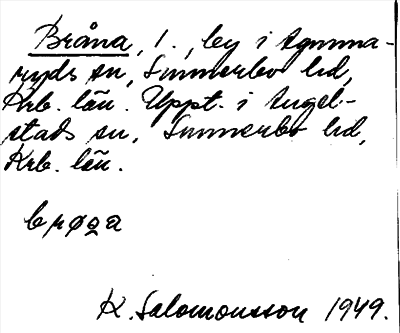 Bråna, 1., by i Agunna-
ryds sn, Sunnerbo hd,
Krb. län. Uppt. i Angel-
stads sn, Sunnerbo hd,
Krb. län.
K. Salomonsson 1949.